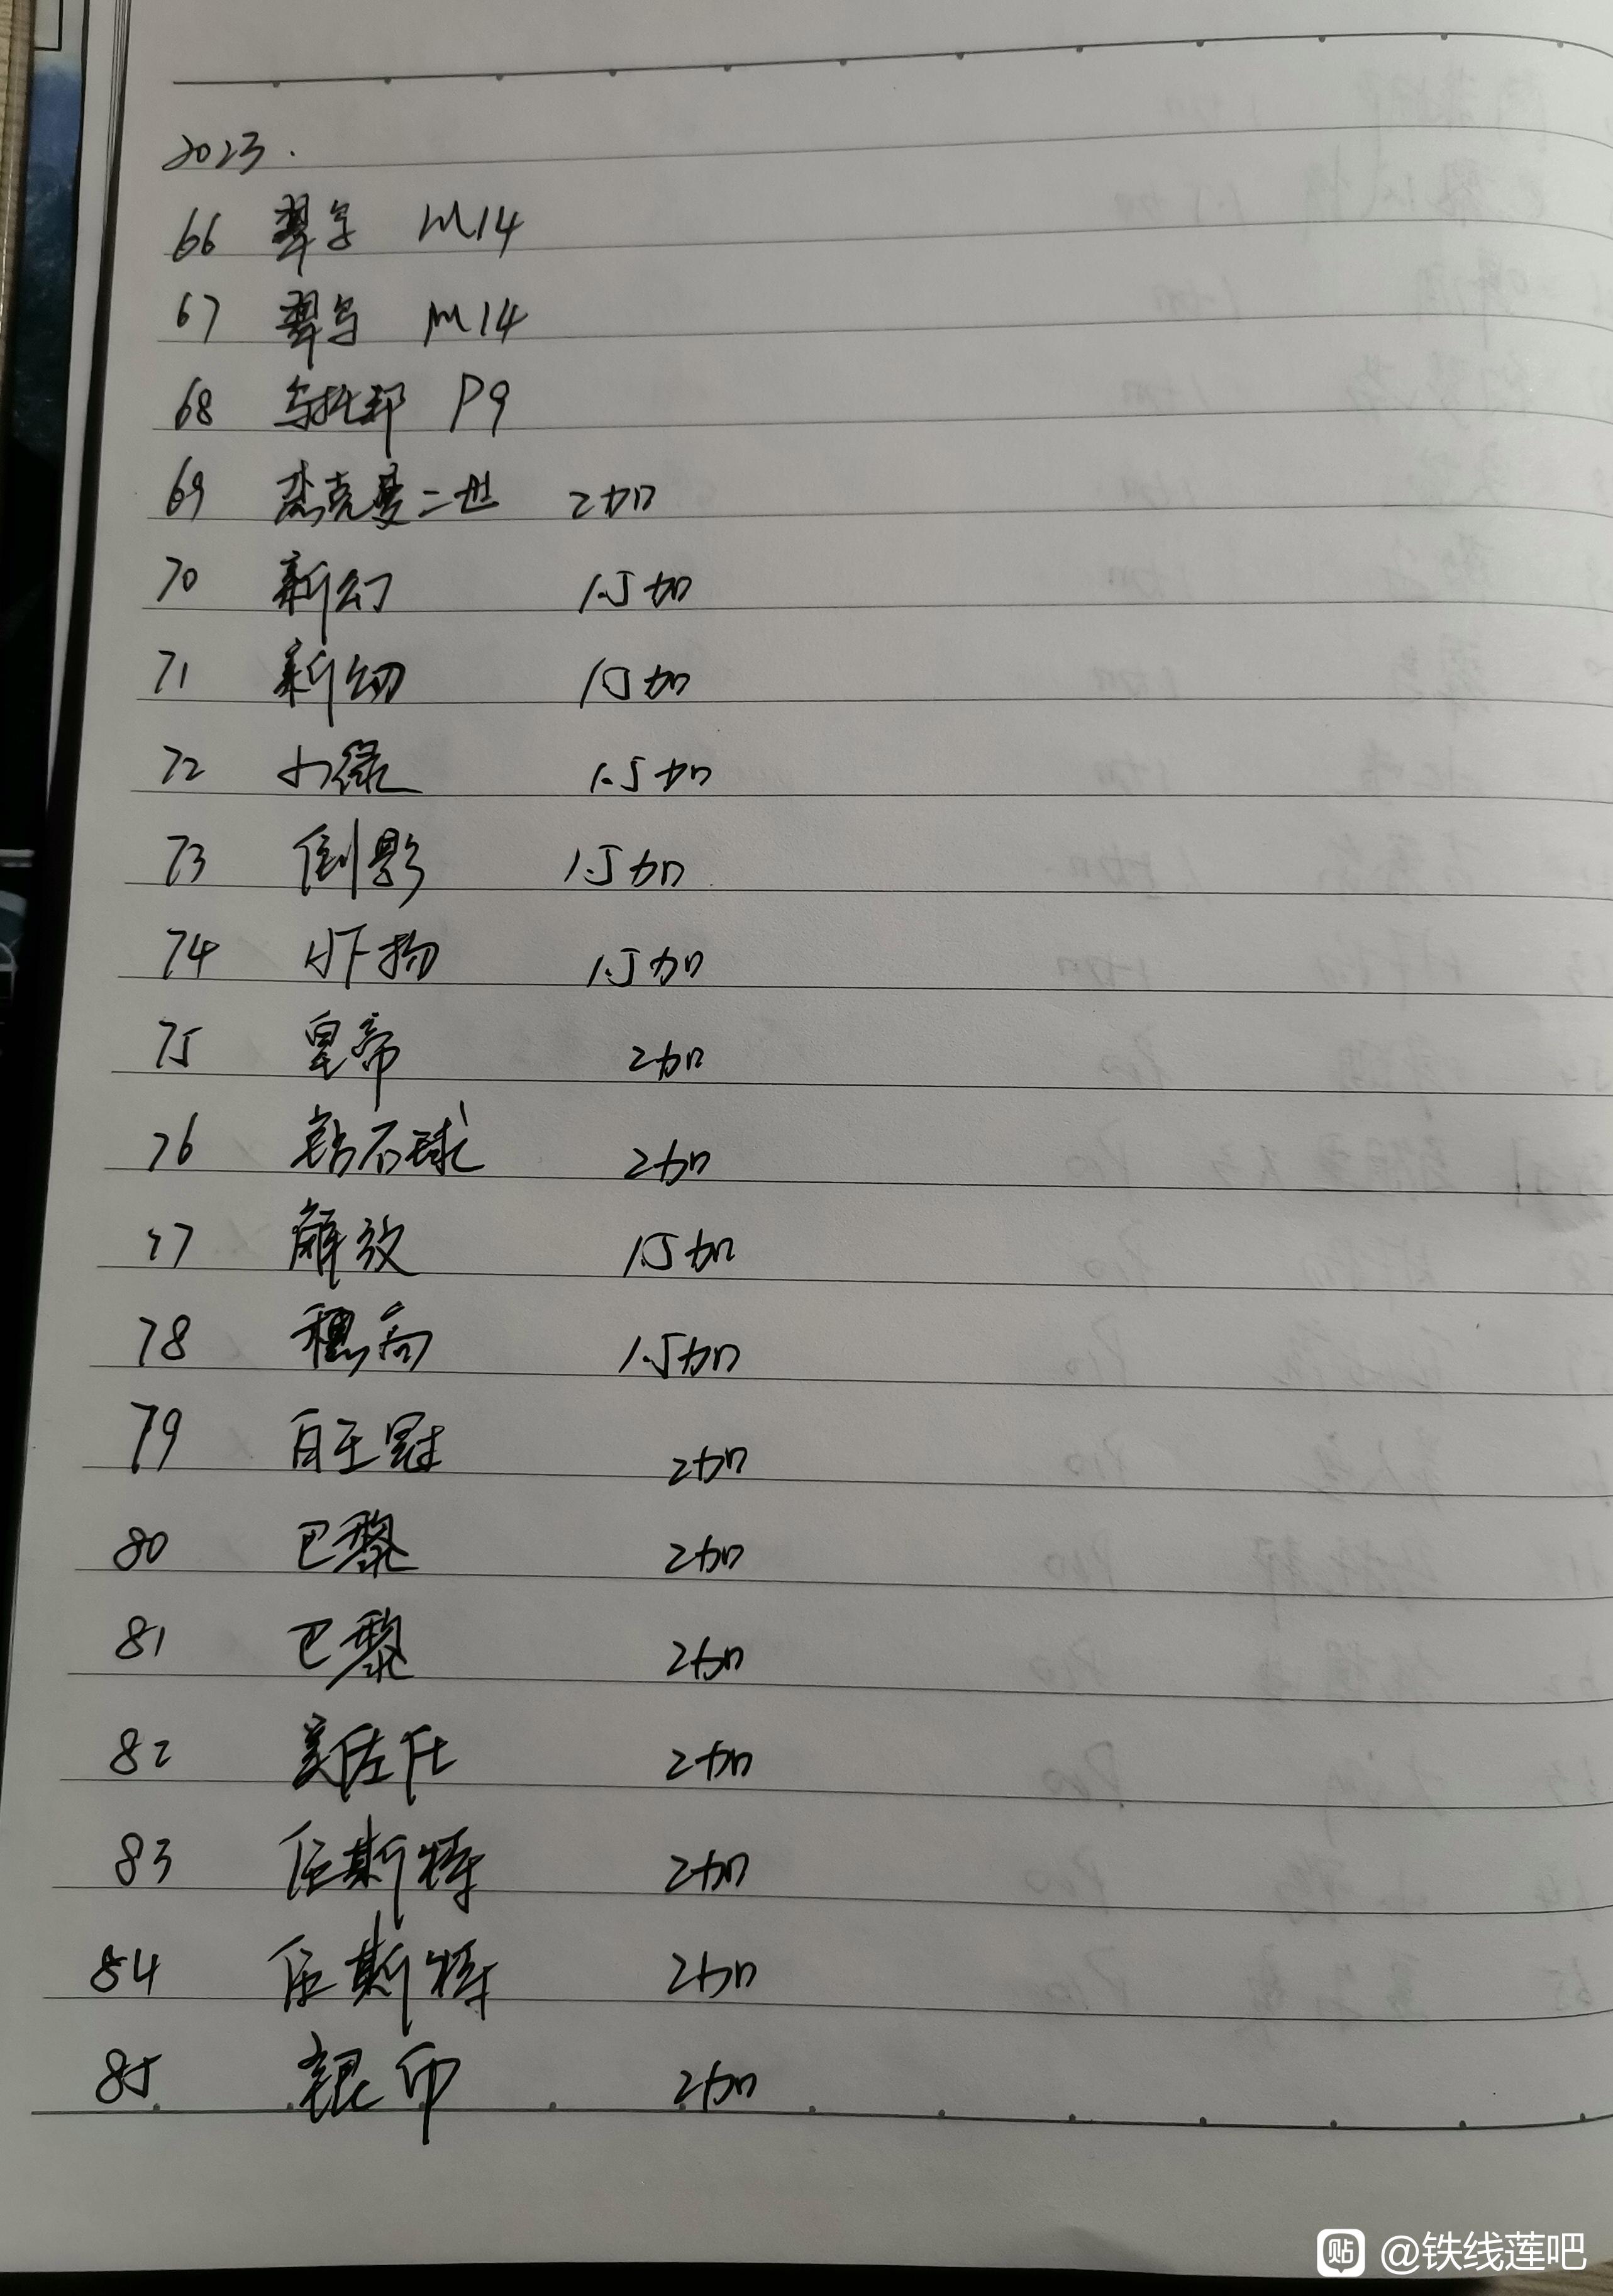 2023.
66 翠鸟 M14
67 翠鸟 M14
68 乌托邦 P9
69 杰克曼二世 2加
70 新幻 1.5加
71 新幻 1.5加
72 小绿 1.5加
73 倒影 1.5加
74 HF扬 1.5加
75 皇帝 2加
76 钻石球 2加
77 解放 1.5加
78 穗高 1.5加
79 白王冠 2加
80 巴黎 2加
81 巴黎 2加
82 美佐世 2加
83 任斯特 2加
84 任斯特 2加
85 银币 2加
贴 @铁线莲吧